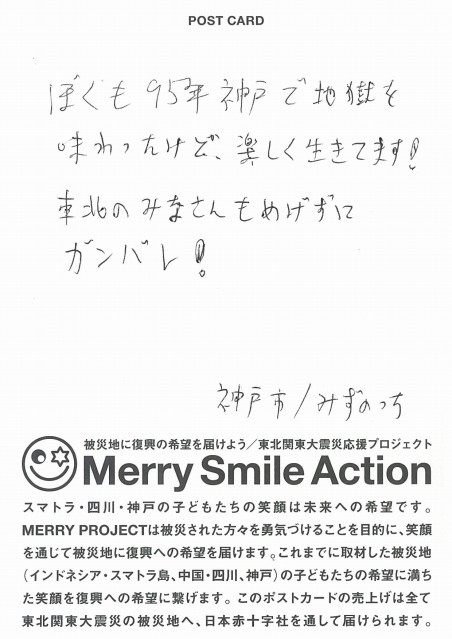 POST CARD
ぼくも95年神戸で地獄を
味わったけど、楽しく生きてます!
東北のみなさんもめげずに
ガンバレ!
神戸市/みずのっち
被災地に復興の希望を届けよう/東北関東大震災応援プロジェクト
Merry Smile Action
スマトラ・四川・神戸の子どもたちの笑顔は未来への希望です。
MERRY PROJECTは被災された方々を勇気づけることを目的に、笑顔
を通じて被災地に復興への希望を届けます。これまでに取材した被災地
(インドネシア・スマトラ島、中国・四川、神戸)の子どもたちの希望に満ち
た笑顔を復興への希望に繋げます。このポストカードの売上げは全て
東北関東大震災の被災地へ、日本赤十字社を通して届けられます。